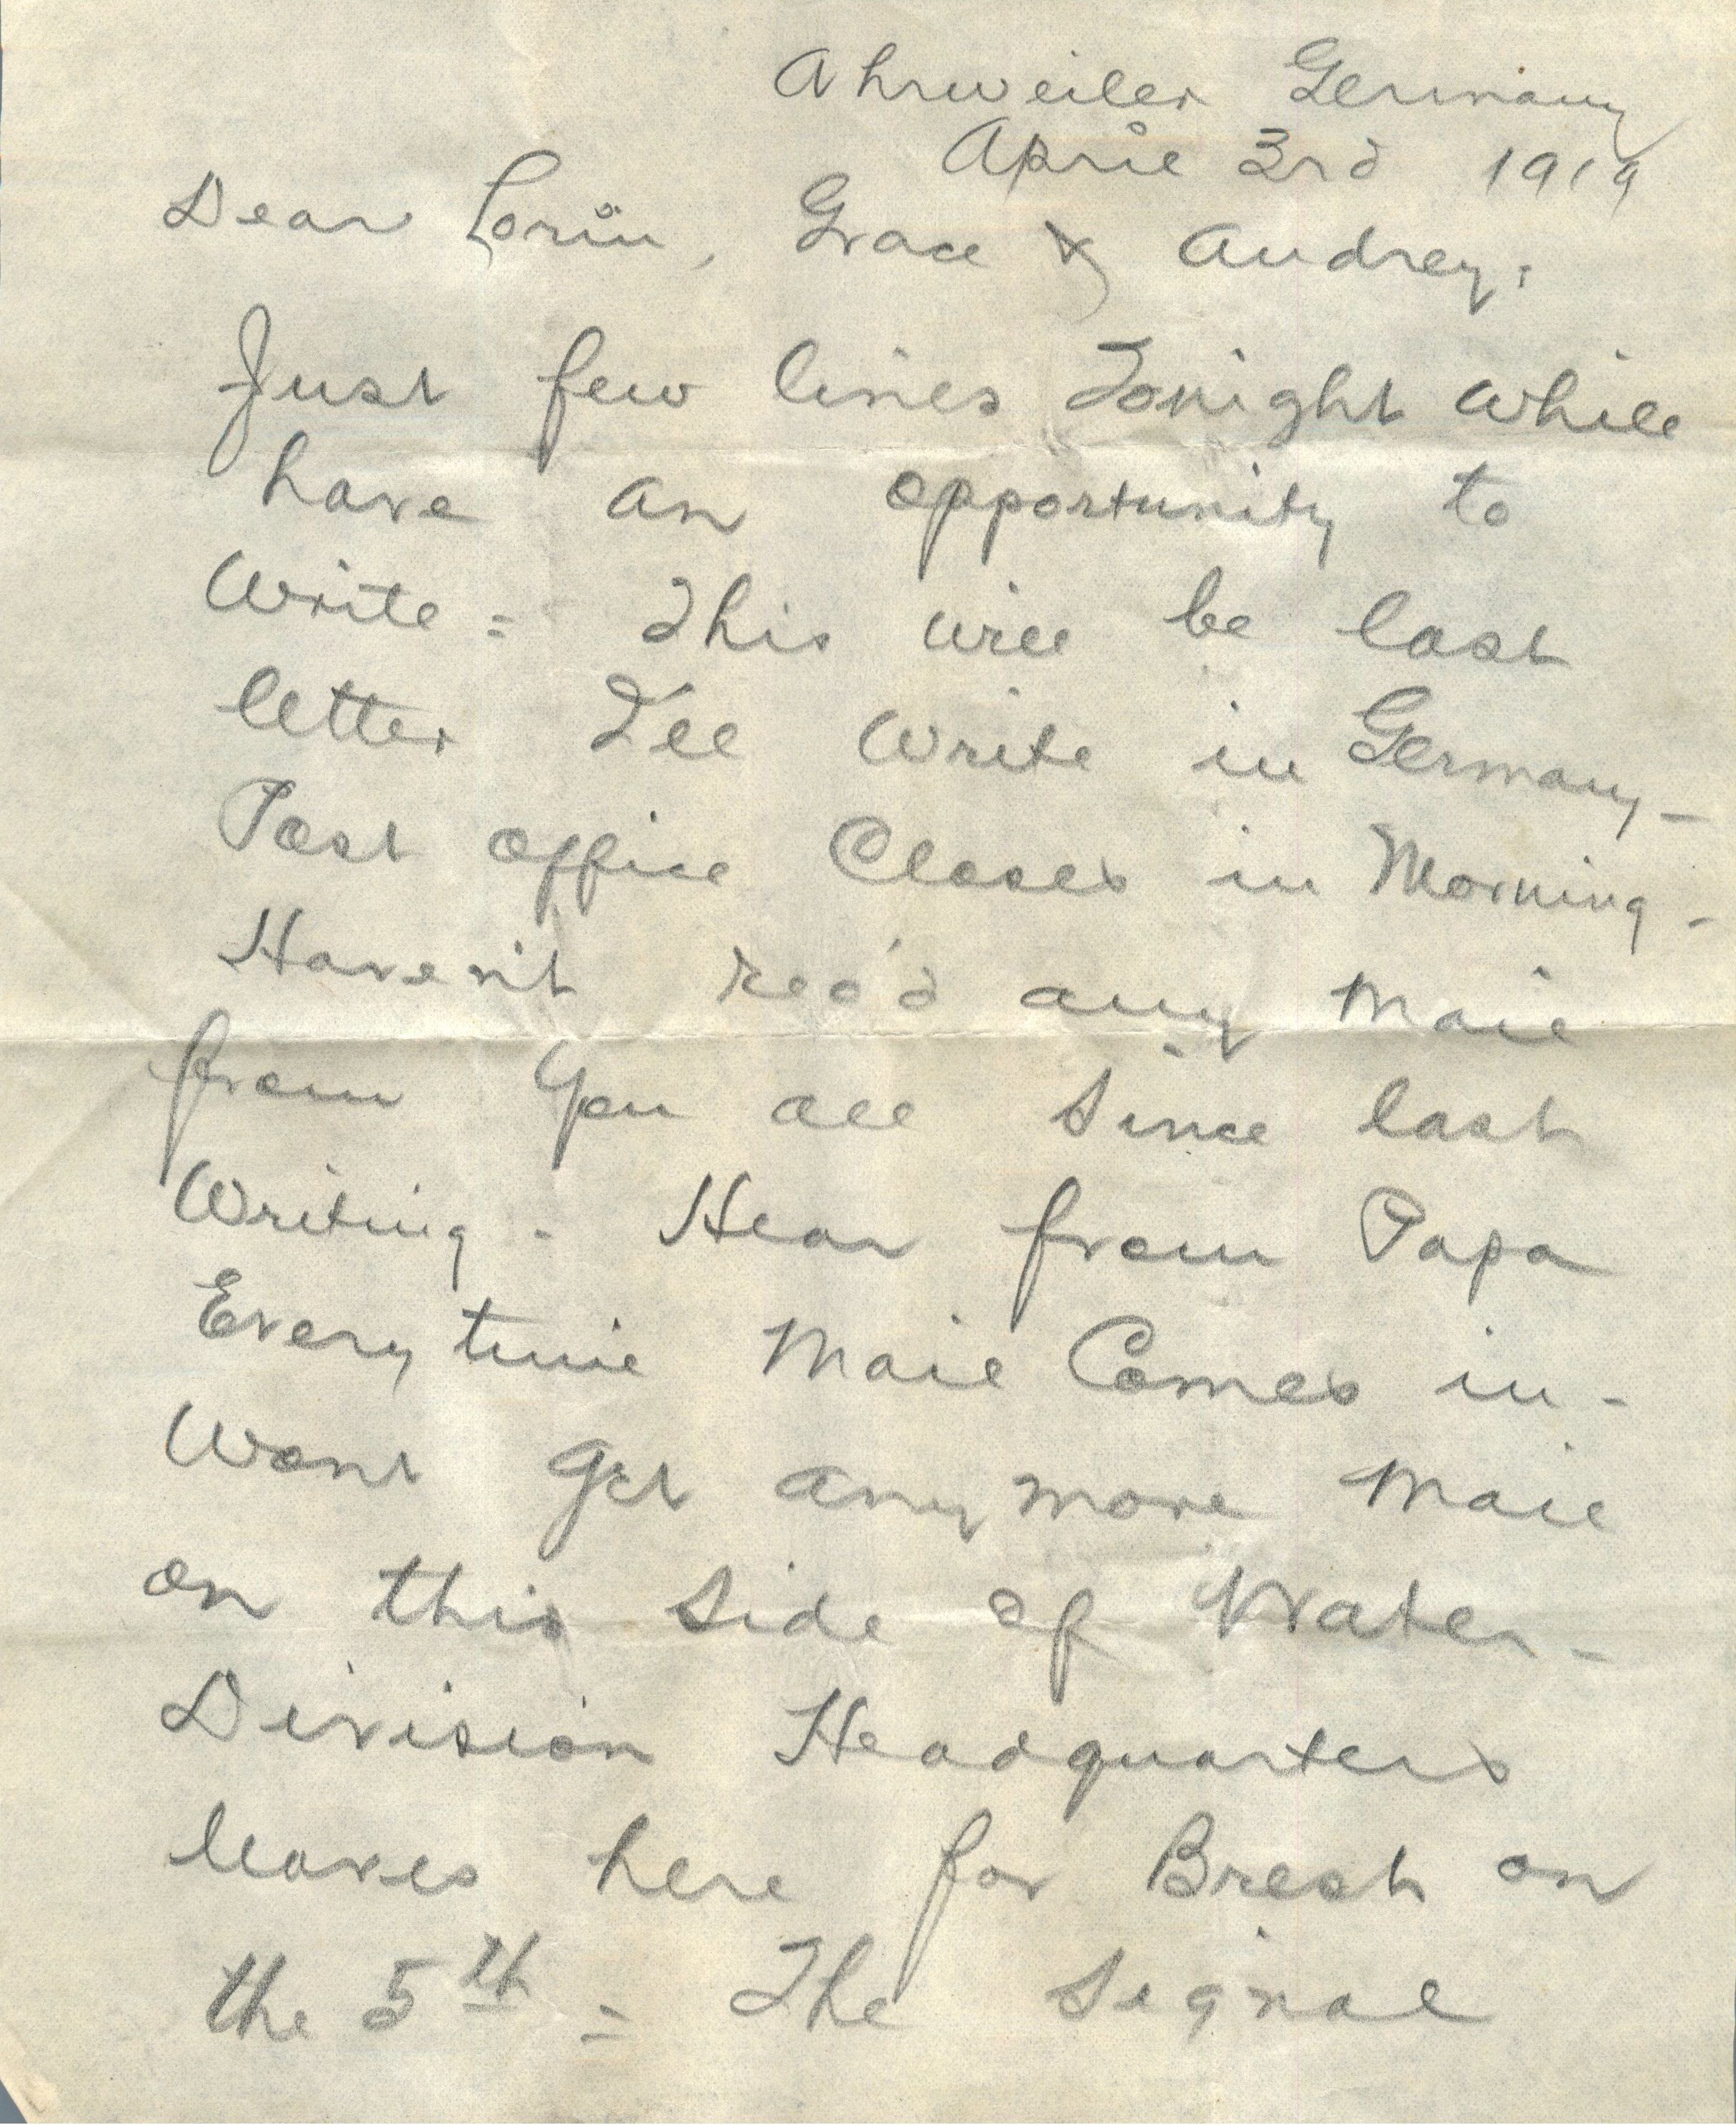 Ahrweiler Germany
April 3rd 1919
Dear Lorin, Grace & Audrey:
Just few lines Tonight While
have an opportunity to
Write = This will be last
letter I'll Write in Germany -
Post office Closes in Morning -
Haven't rec'd any Mail
from You all Since last
Writing - Hear from Papa
Every time Mail Comes in -
Wont get anymore Mail
on this Side of Water -
Division Headquarters
leaves here for Brest on
the 5th = The Signal